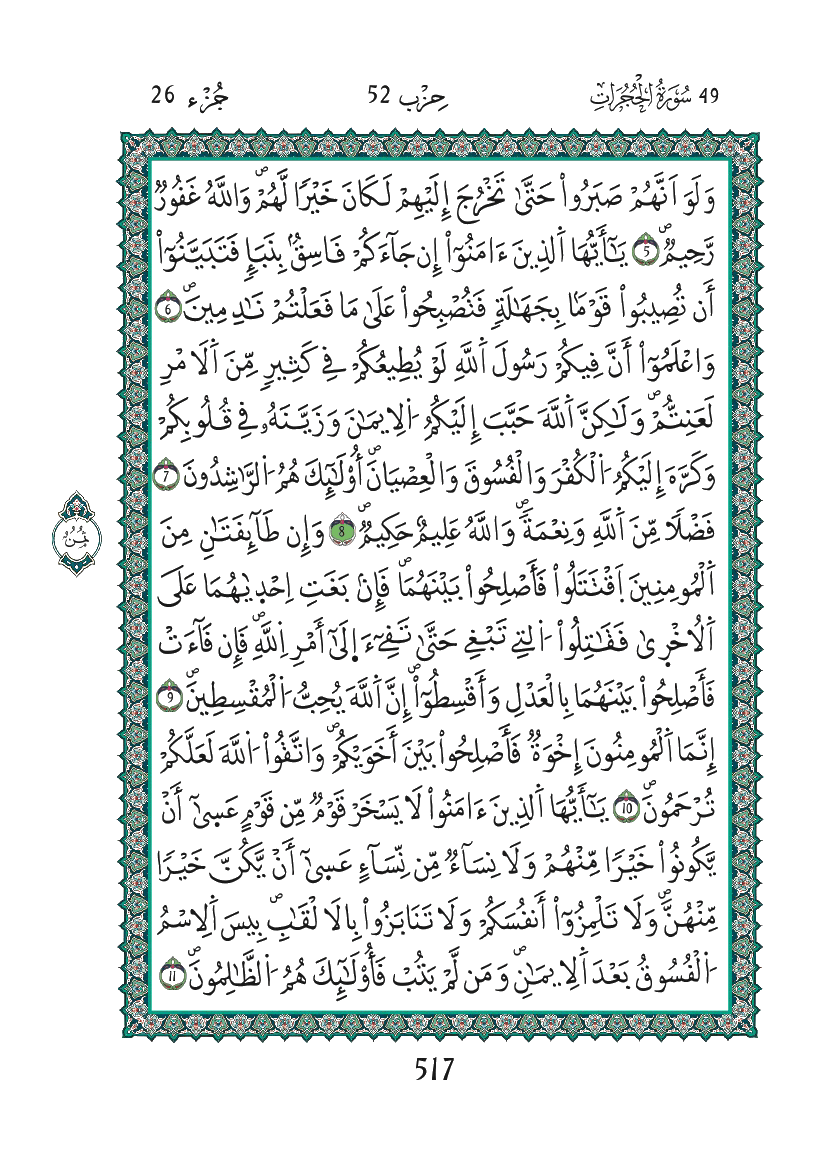 49 سُورَةُ الْحُجُرَاتِ حِزْب 52 جُزْء 26
وَلَوَ اَنَّهُمْ صَبَرُواْ حَتَّىٰ تَخْرُجَ إِلَيْهِمْ لَكَانَ خَيْرًا لَّهُمْ وَاللَّهُ غَفُورٌ
رَّحِيمٌ 5 يَٰٓأَيُّهَا اَ۬لذِينَ ءَامَنُوٓاْ إِن جَآءَكُمْ فَاسِقُۢ بِنَبَإٖ فَتَبَيَّنُوٓاْ
أَن تُصِيبُواْ قَوْمَاۢ بِجَهَٰلَةٖ فَتُصْبِحُواْ عَلَىٰ مَا فَعَلْتُمْ نَٰدِمِينَ 6
وَاعْلَمُوٓاْ أَنَّ فِيكُمْ رَسُولَ اَ۬للَّهِ لَوْ يُطِيعُكُمْ فِے كَثِيرٖ مِّنَ اَ۬لَامْرِ
لَعَنِتُّمْ وَلَٰكِنَّ اَ۬للَّهَ حَبَّبَ إِلَيْكُمُ اُ۬لِايمَٰنَ وَزَيَّنَهُۥ فِے قُلُوبِكُمْ
وَكَرَّهَ إِلَيْكُمُ اُ۬لْكُفْرَ وَالْفُسُوقَ وَالْعِصْيَانَ أُوْلَٰٓئِكَ هُمُ اُ۬لرَّٰشِدُونَ 7
فَضْلًا مِّنَ اَ۬للَّهِ وَنِعْمَةٗ وَاللَّهُ عَلِيمٌ حَكِيمٌ 8 وَإِن طَآئِفَتَٰنِ مِنَ
اَ۬لْمُومِنِينَ اَ۪قْتَتَلُواْ فَأَصْلِحُواْ بَيْنَهُمَا فَإِنۢ بَغَتِ اِحْد۪يٰهُمَا عَلَى
اَ۬لُاخْر۪ىٰ فَقَٰتِلُواْ اُ۬لتِے تَبْغِے حَتَّىٰ تَفِےٓءَ اِلَىٰٓ أَمْرِ اِ۬للَّهِ فَإِن فَآءَتْ
فَأَصْلِحُواْ بَيْنَهُمَا بِالْعَدْلِ وَأَقْسِطُوٓاْ إِنَّ اَ۬للَّهَ يُحِبُّ اُ۬لْمُقْسِطِينَ 9
إِنَّمَا اَ۬لْمُومِنُونَ إِخْوَةٞ فَأَصْلِحُواْ بَيْنَ أَخَوَيْكُمْ وَاتَّقُواْ اُ۬للَّهَ لَعَلَّكُمْ
تُرْحَمُونَ 10 يَٰٓأَيُّهَا اَ۬لذِينَ ءَامَنُواْ لَا يَسْخَرْ قَوْمٞ مِّن قَوْمٍ عَس۪ىٰٓ أَنْ
يَّكُونُواْ خَيْرٗا مِّنْهُمْ وَلَا نِسَآءٞ مِّن نِّسَآءٍ عَس۪ىٰٓ أَنْ يَّكُنَّ خَيْرٗا
مِّنْهُنَّ وَلَا تَلْمِزُوٓاْ أَنفُسَكُمْ وَلَا تَنَابَزُواْ بِالَالْقَٰبِ بِيسَ اَ۬لِاسْمُ
اُ۬لْفُسُوقُ بَعْدَ اَ۬لِايمَٰنِ وَمَن لَّمْ يَتُبْ فَأُوْلَٰٓئِكَ هُمُ اُ۬لظَّٰلِمُونَ 11
517